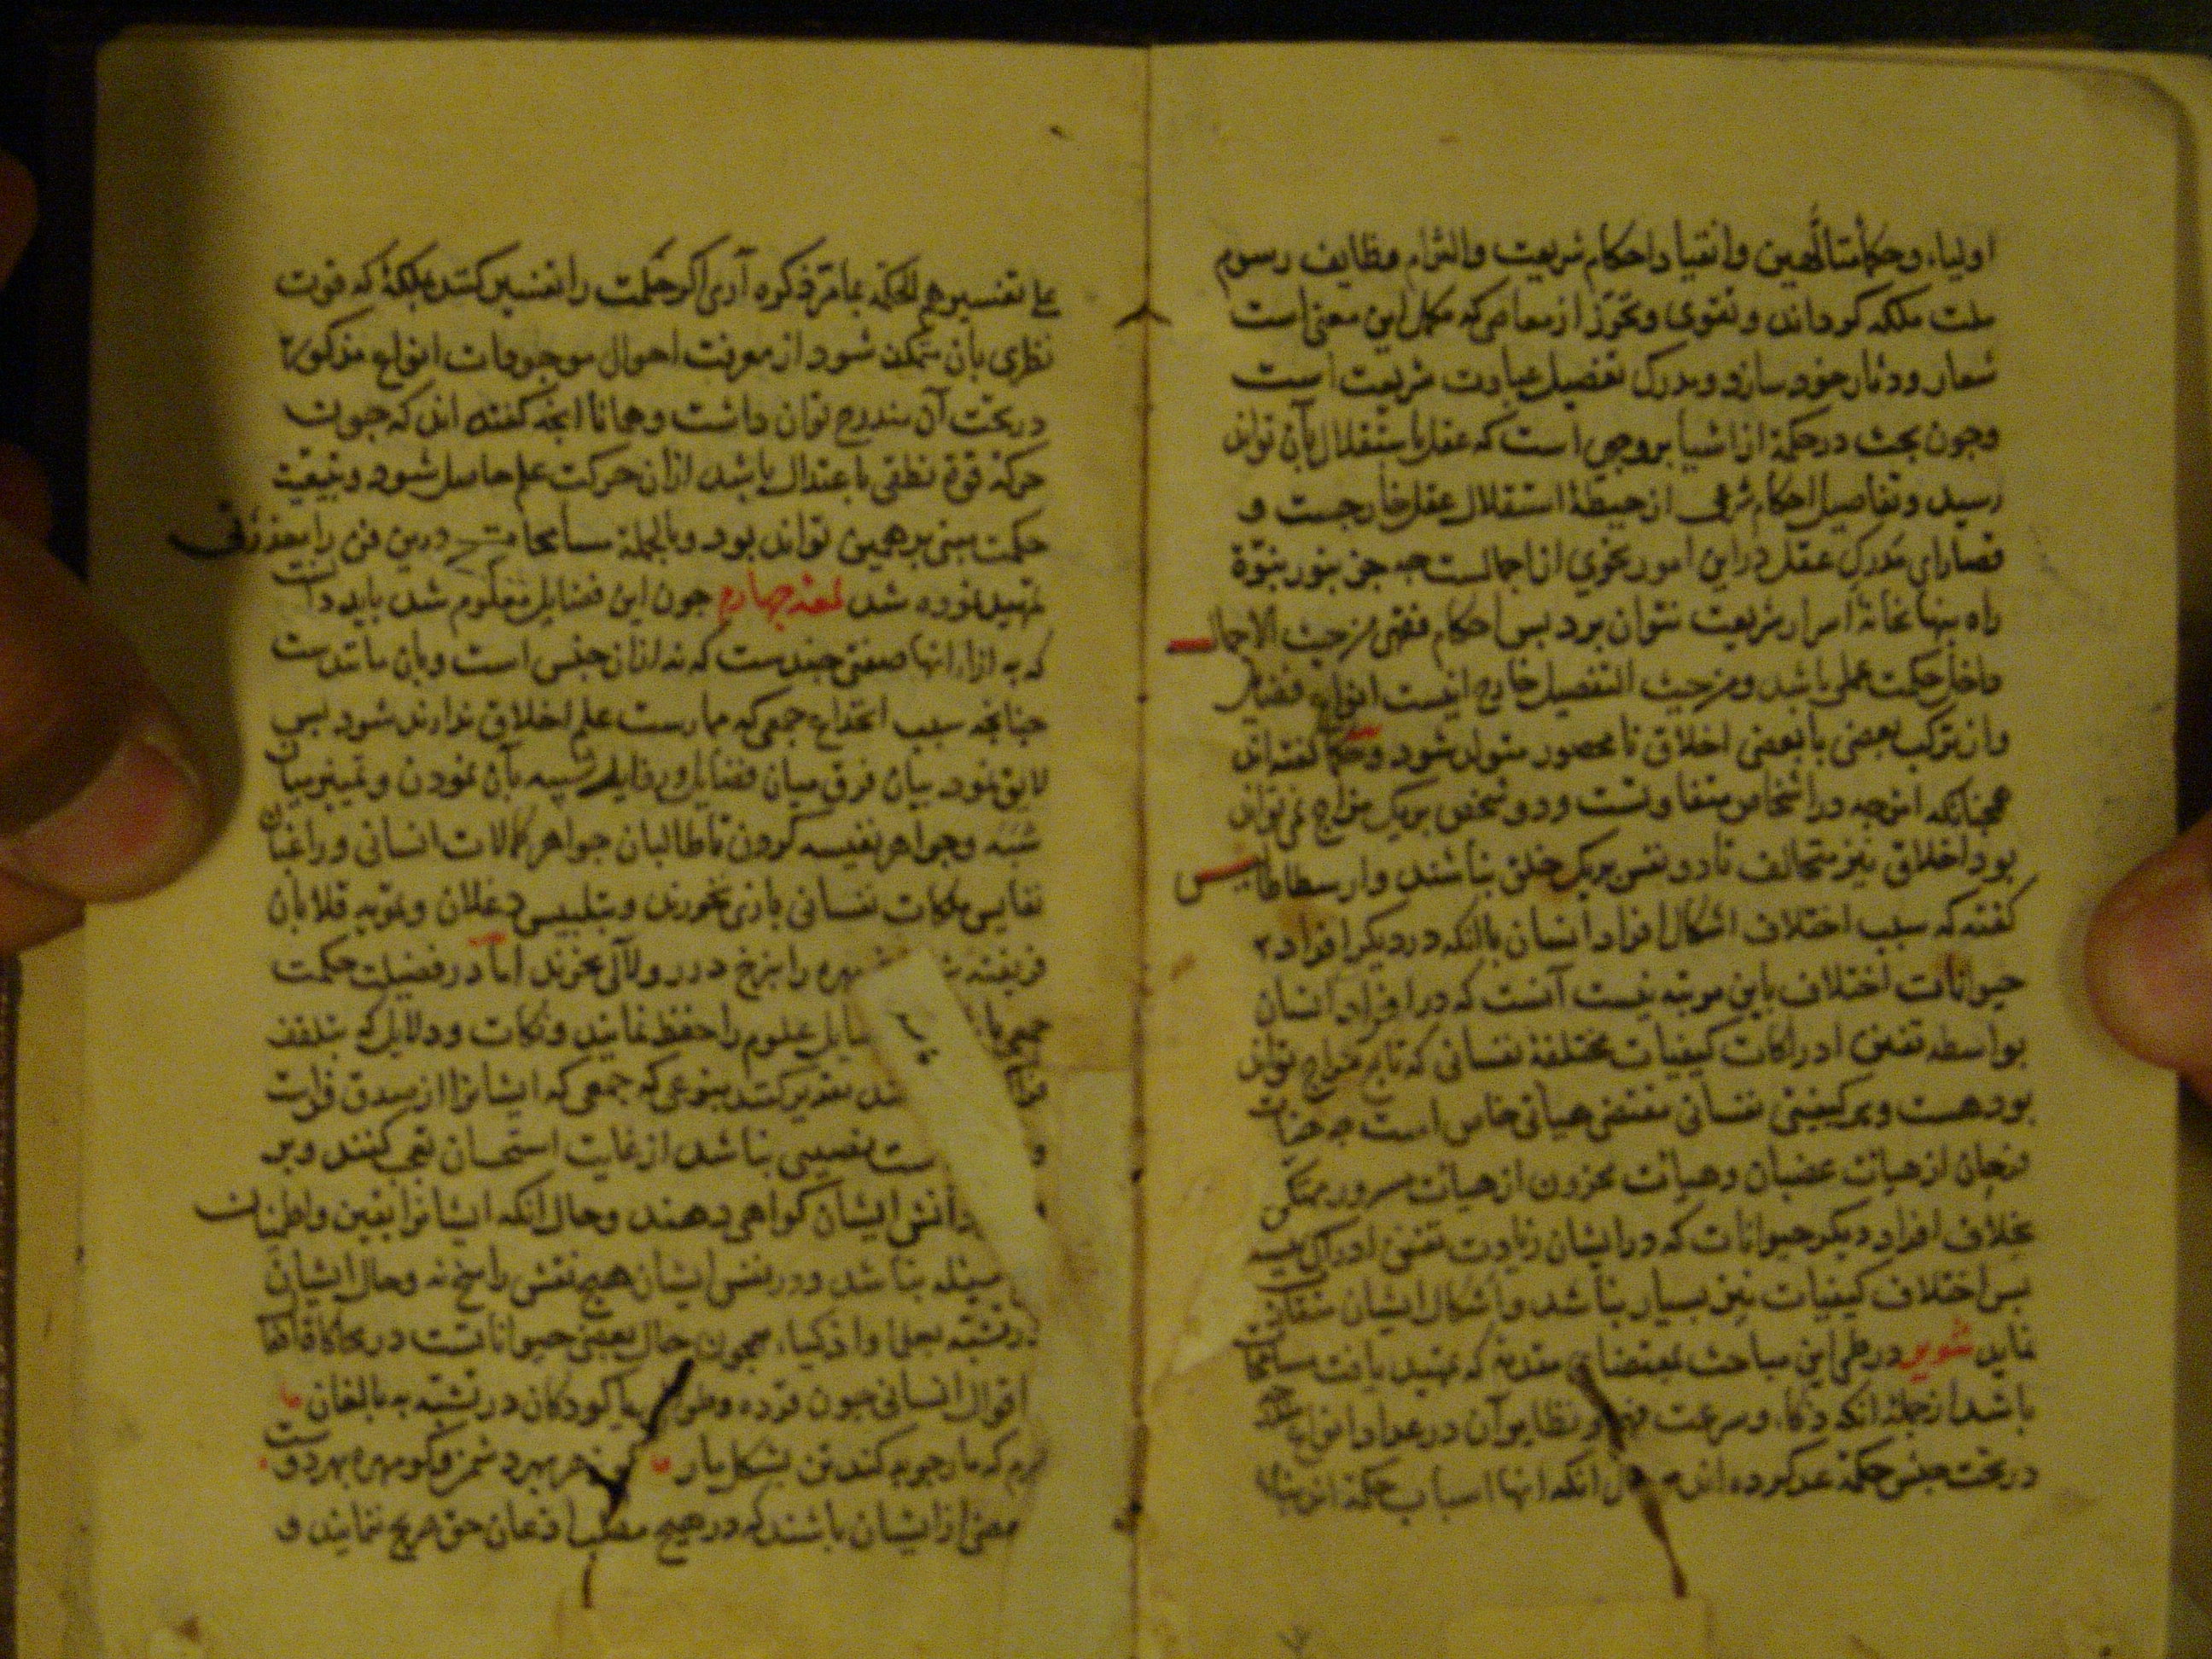 اولیاء و حکماء متالّهین و انقیاد احکام شریعت و التزام وظایف رسوم
ملت ملکه گرداند و تقوی و تحرّز از معاصی که مکمل این معنی است
شعار و دثار خود سازد و مدرک تفصیل عبادت شریعت است
وجون بحث در حکمة از اشیا بر وجهی است که عقل باستقلال بآن تواند
رسید و تفاصیل احکام شرعی از حیطهٔ استقلال عقل خارجست و
قصارای مدرک عقل در این امور نحوی از اجمالست جه جز بنور نبوّة
راه بنهانخانهٔ اسرار شریعت نتوان برد بس احکام فقهی من حیث الاجمال
داخل حکمت عملی باشد و من حیث التفصیل خارج اینست انواع فضایل
و از ترکب بعضی با بعضی اخلاق نامحصور متولد شود و حکما گفته اند
همجنانکه امزجه در اشخاص متفاوتست و دو شخص بر یک مزاج نمی تواند
بود اخلاق نیز متخالف تا دو نفس بر یک خلق نباشند و ارسطاطالیس
گفته که سبب اختلاف اشکال افراد انسان با انکه در دیکر افراد
حیوانات اختلاف باین مرتبه نیست آنست که در افراد انسان
بواسطه تفنن ادراکات کیفیات مختلفهٔ نفسانی که تابع مزاج تواند
بود هست و هر کیفیتی نفسانی مقتضی هیاتی خاص است جه هیات
فرحان از هیات غضبان و هیات محزون از هیات مسرور ممتاز
بخلاف افراد دیکر حیوانات که در ایشان زیادت تفنن ادراک نیست
بس اختلاف کیفیات نیز بسیار نباشد و اشکال ایشان متقارب
نماید تنویر در طی این مباحث بمقتضای مقدمهٔ که تمهید یافت مسامحات
باشد از جمله انکه ذکاء و سرعت فهم و نظایر آن در عداد انواع مندرجه
در تحت جنس حکمة عد کرده اند حال انکه انها اسباب حکمة اند بناء
علی تفسیرهم للحکمة بما مرّ ذکره آری اکر حکمت را تفسیر کنند بملکهٔ که قوت
نظری بآن متمکن شود از معرفت احوال موجودات انواع مذکور
در تحت آن مندرج توان داشت و همانا انجه گفته اند که جون
حرکة قوة نطقی باعتدال باشد از ان حرکت علم حاصل شود و بتبعیت
حکمت مبنی بر همین تواند بود و بالجملة مسامحات درین فن را معذرتی
تمهید نموده شد لمعهٔ جهارم جون این فضایل معلوم شد باید دانست
که به ازاء انها صفتی جندست که نه از ان جنس است و بان مانندست
جنانجه سبب انخداع جمعی که ممارست علم اخلاق ندارند شود بس
لایق نمود بیان فرق میان فضایل و رذایل شبیه بآن نمودن و تمییز میان
شبه و جواهر نفیسه کردن تا طالبان جواهر کمالات انسانی و راغبان
نفایس ملکات نفسانی بازی نخورند و بتلبیس دغلان و تمویه قلابان
فریفته مهره را بنرخ درر و لآلی نخرند اما در فضیلت حکمت
جمعی مسایل علوم را حفظ نمایند و نکات و دلایل که بتلقف
تقریر کنند بنوعی که جمعی که ایشانرا از صدق فراست
نصیبی نباشد از غایت استحسان تعجب کنند و بر
دانش ایشان گواهی دهند و حال انکه ایشانرا یقین و اطمینان
مسئله نباشد و در نفس ایشان هیچ نقش راسخ نه و حال ایشان
در تشبه بعلما و اذکیاء همجون حال بعضی حیواناتست در محاکات افعال
اقوال انسانی جون قرده و طوطی یا کودکان در تشبه به بالغان
گیرم که مارجوبه کند تن بشکل مار کو زهر بهر دشمن و کو مهره بهر دوست
بعضی از ایشان باشند که در هیچ مطلب اذعان حق صریح ننمایند و